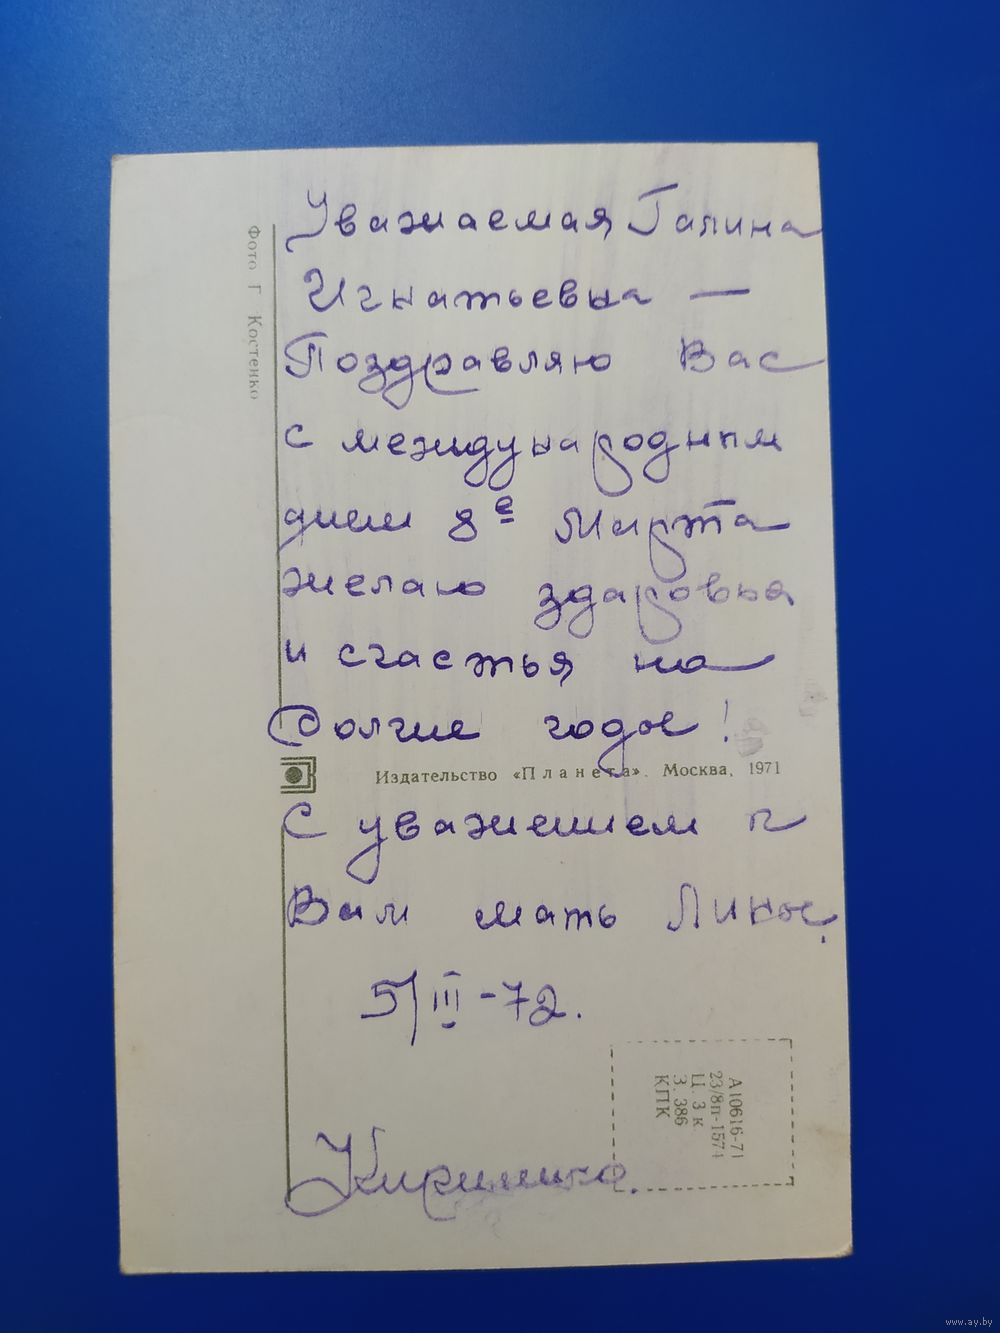 Уважаемая Галина
Игнатьевна —
Поздравляю Вас
с международным
днем 8е Марта
желаю здаровья
и счастья на
Долгие годы!
С уважением к
Вам мать Лины.
5/III-72.
Фото Г. Костенко
Издательство «Планета». Москва, 1971
А10616-71
23/8п-1571
Ц. 3 к.
З. 386
КПК
www.ay.by